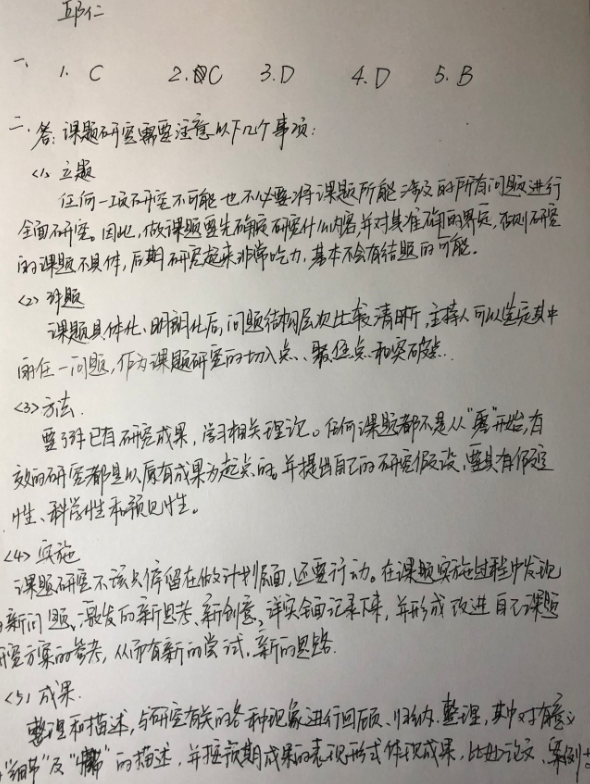 邱仁
一、
1. C 2. C 3. D 4. D 5. B
二.答:课题研究需要注意以下几个事项:
<1> 立题
任何一项研究不可能也不必要将课题所能涉及的所有问题进行
全面研究。因此,做课题要先确定研究什么内容,并对其准确的界定,否则研究
的课题不具体,后期研究起来非常吃力,基本不会有结题的可能。
<2> 拆题
课题具体化、明朗化后,问题结构层次比较清晰,主持人可以选定其中
的任一问题,作为课题研究的切入点、聚焦点和突破点.
<3>方法.
要了解已有研究成果,学习相关理论。任何课题都不是从“零”开始,有
效的研究者都是以原有成果为起点的。并提出自己的研究假设,要具有假定
性、科学性和预见性。
<4> 实施
课题研究不该只停留在做计划层面,还要行动。在课题实施过程中发现
新问题、激发的新思考、新创意,详实全面记录下来,并形成改进自己课题
研究方案的参考,从而有新的尝试、新的思路.
<5> 成果.
整理和描述,与研究有关的各种现象进行回顾、归纳、整理,其中对有意义
“细节”及“情节”的描述,并按预期成果的表现形式体现成果,比如论文、案例